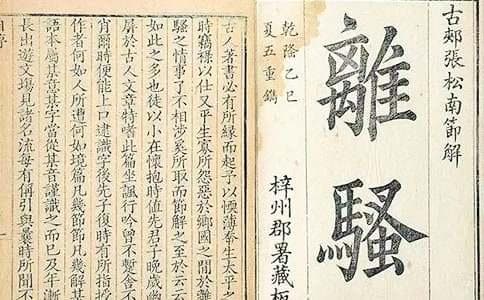 古郟張松南節解
離騷
乾隆乙巳
夏五重鐫
梓州郡署藏板
古之著書必有所緣而起予以薄忝生太平之
時竊祿以仕又平生寡所怨惡於鄉國之間於離
騷之情事了不相涉奚所取而節解之至於云云
如此之多也徒以小在懷抱時值先君子晚歲幽
屏於古人文章特嗜此篇坐諷行吟曾不蹔舍不
肖爾時便能上口逮識字後先子復時有所指授
作者何如人所遭何如境篇凡幾節節凡幾
語本屬某意某字當從某音謹識之而已及年漸
長出遊文塲見諸名流每有稱引與曩時所聞不
自序